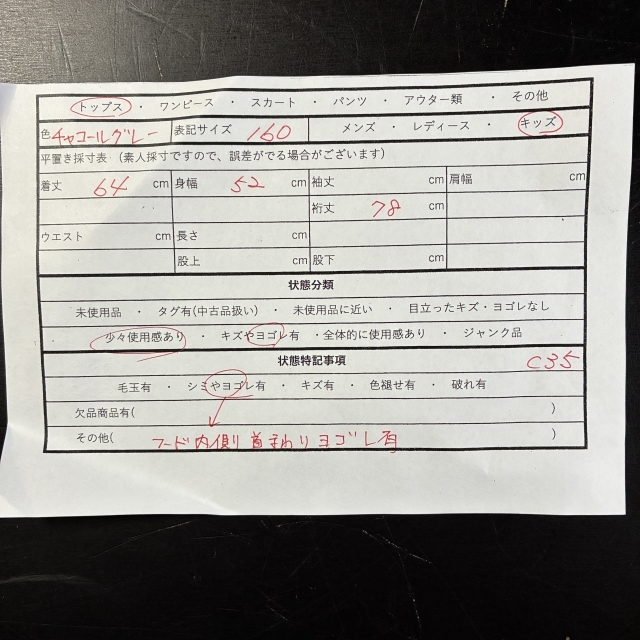 トップス ・ ワンピース ・ スカート ・ パンツ ・ アウター類 ・ その他
色 チャコールグレー 表記サイズ 160 メンズ ・ レディース ・ キッズ
平置き採寸表 (素人採寸ですので、誤差がでる場合がございます)
着丈 64 cm 身幅 52 cm 袖丈 cm 肩幅 cm
裄丈 78 cm
ウエスト cm 長さ cm
股上 cm 股下 cm
状態分類
未使用品 ・ タグ有(中古品扱い) ・ 未使用品に近い ・ 目立ったキズ・ヨゴレなし
少々使用感あり ・ キズやヨゴレ有 ・全体的に使用感あり ・ ジャンク品
状態特記事項 C35
毛玉有 ・ シミやヨゴレ有 ・ キズ有 ・ 色褪せ有 ・ 破れ有
欠品商品有( )
その他( フード内側 首まわりヨゴレ有 )